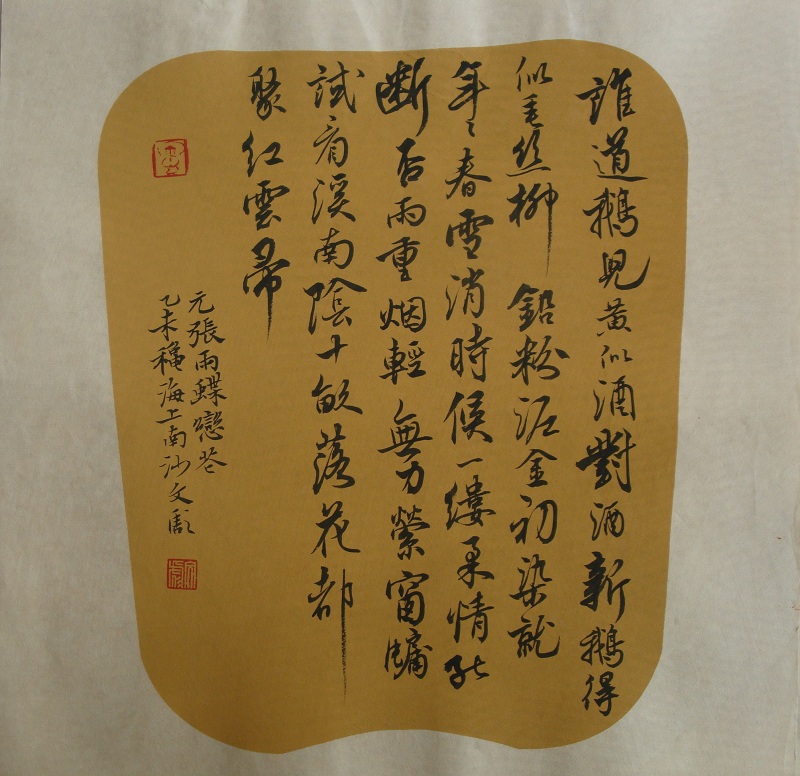 誰道鵝兒黃似酒對酒新鵝得
似垂絲柳 鉛粉泥金初染就
年〻春雪消時候一縷柔情能
斷否雨重烟輕無力縈窗牖
試看溪南陰十畝落花都
聚紅雲帚
元張雨蝶戀花
乙未穐海上南沙文